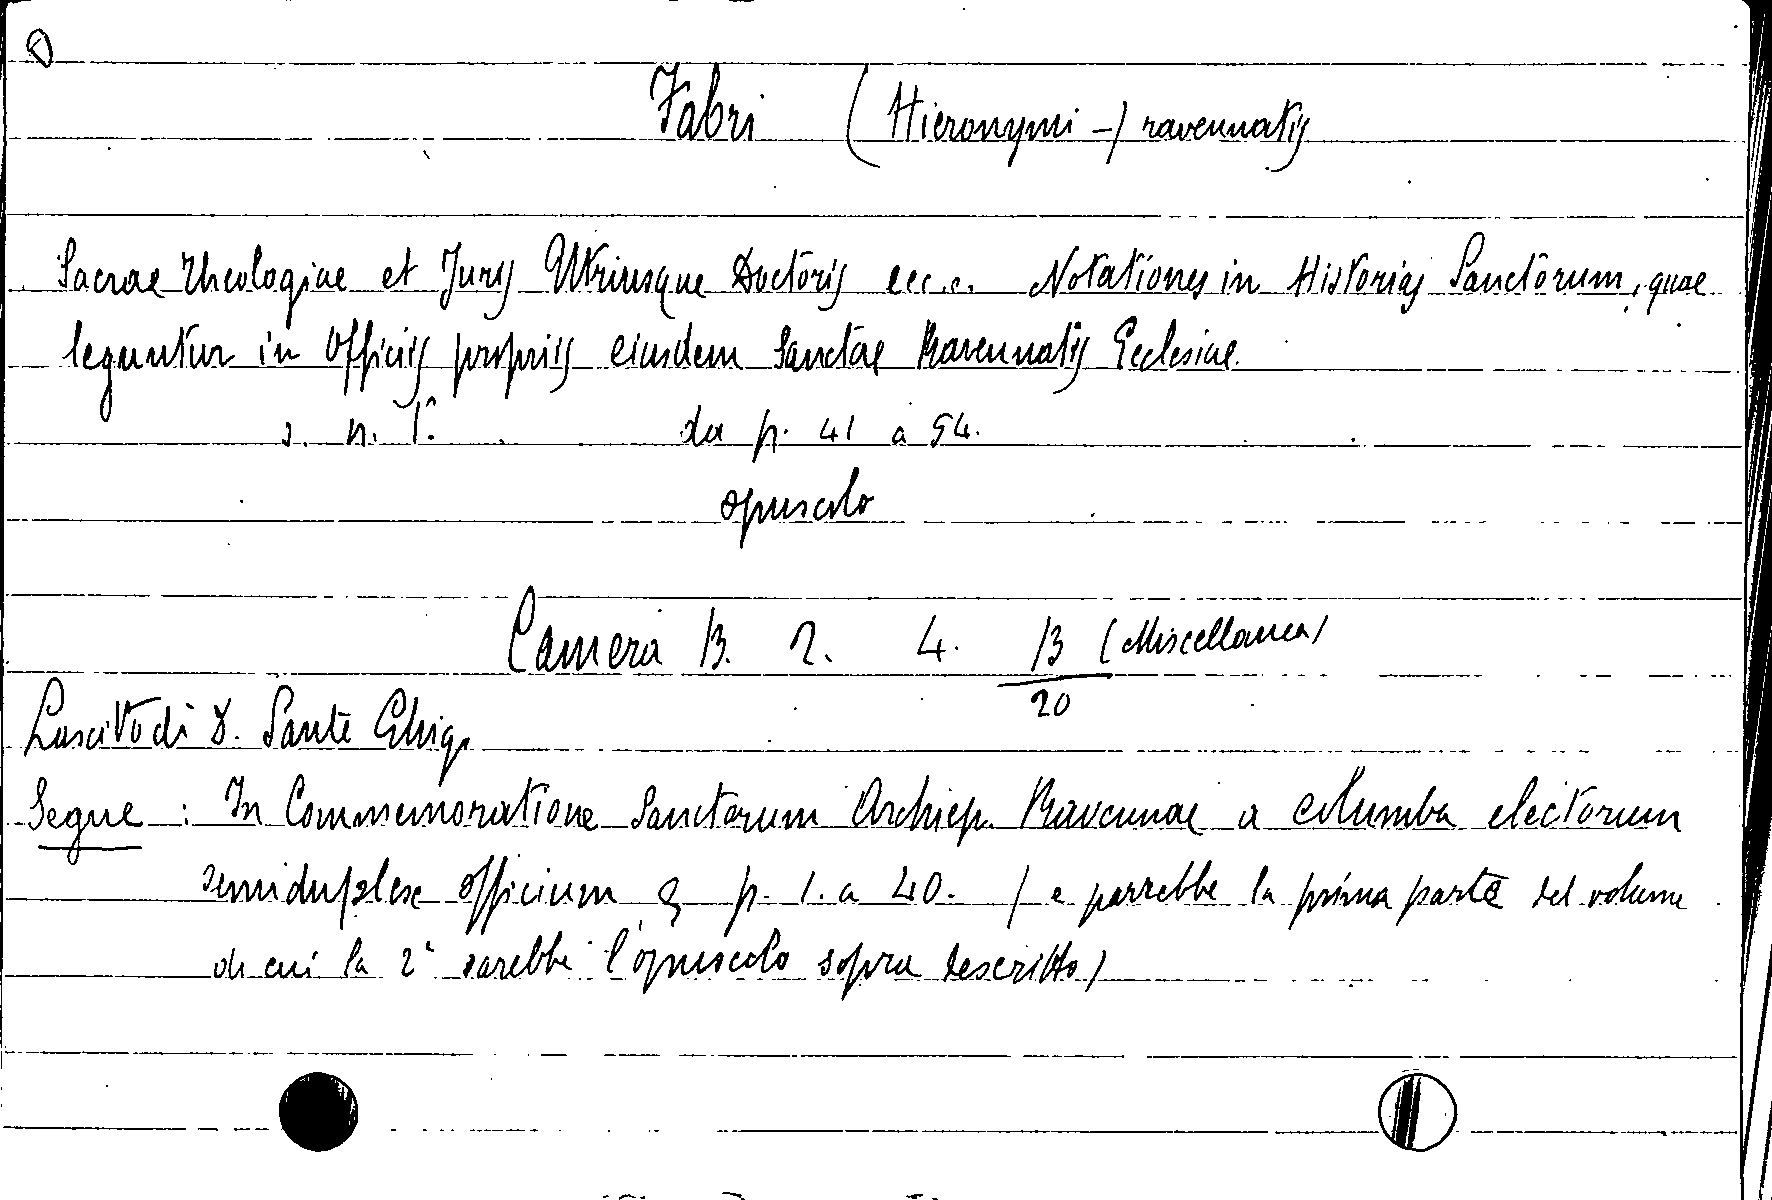 Fabri (Hieronymi -) ravennatis
Sacrae Theologiae et Juris Utriusque Doctoris ecc.. Notationes in Historias Sanctorum, quae
leguntur in Officiis propriis eiusdem Sanctae Ravennatis Ecclesiae.
s. n. T. da p. 41 a 54.
opuscolo
Camera B. 2. 4. B (Miscellanea)
20
Lascito di D. Sante Ghig.
Segue : In Commemoratione Sanctorum Archiep. Ravennae a columba electorum
semiduplex officium p. 1. a 40. (e parrebbe la prima parte del volume
di cui la 2ª sarebbe l'opuscolo sopra descritto)